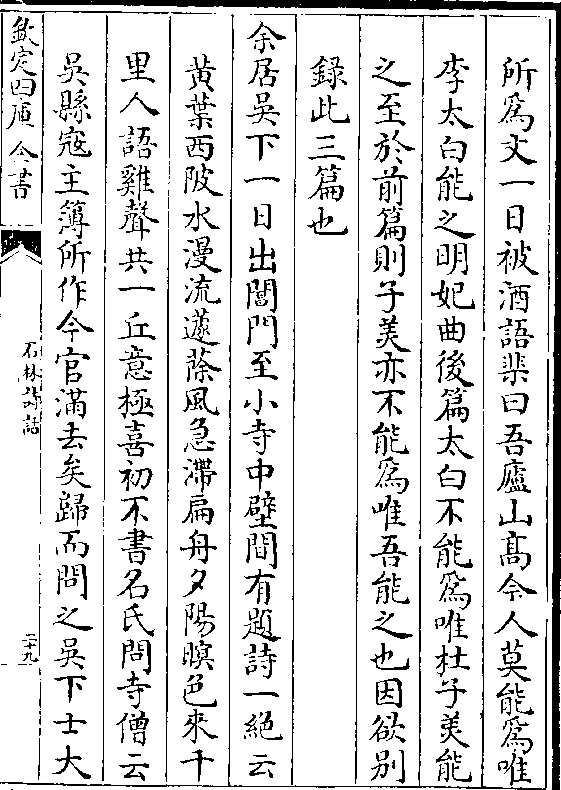 所爲文一日被酒語棐曰吾廬山髙今人莫能爲唯
李太白能之明妃曲後篇太白不能爲唯杜子美能
之至於前篇則子美亦不能爲唯吾能之也因欲別
録此三篇也
余居吳下一日出閶門至小寺中壁間有題詩一絕云
黄葉西陂水漫流蘧蒢風急滯扁舟夕陽暝色來千
里人語雞聲共一丘意極喜初不書名氏問寺僧云
吳縣寇主簿所作今官滿去矣歸而問之吳下士大
欽定四庫全書
石林詩話
二十九